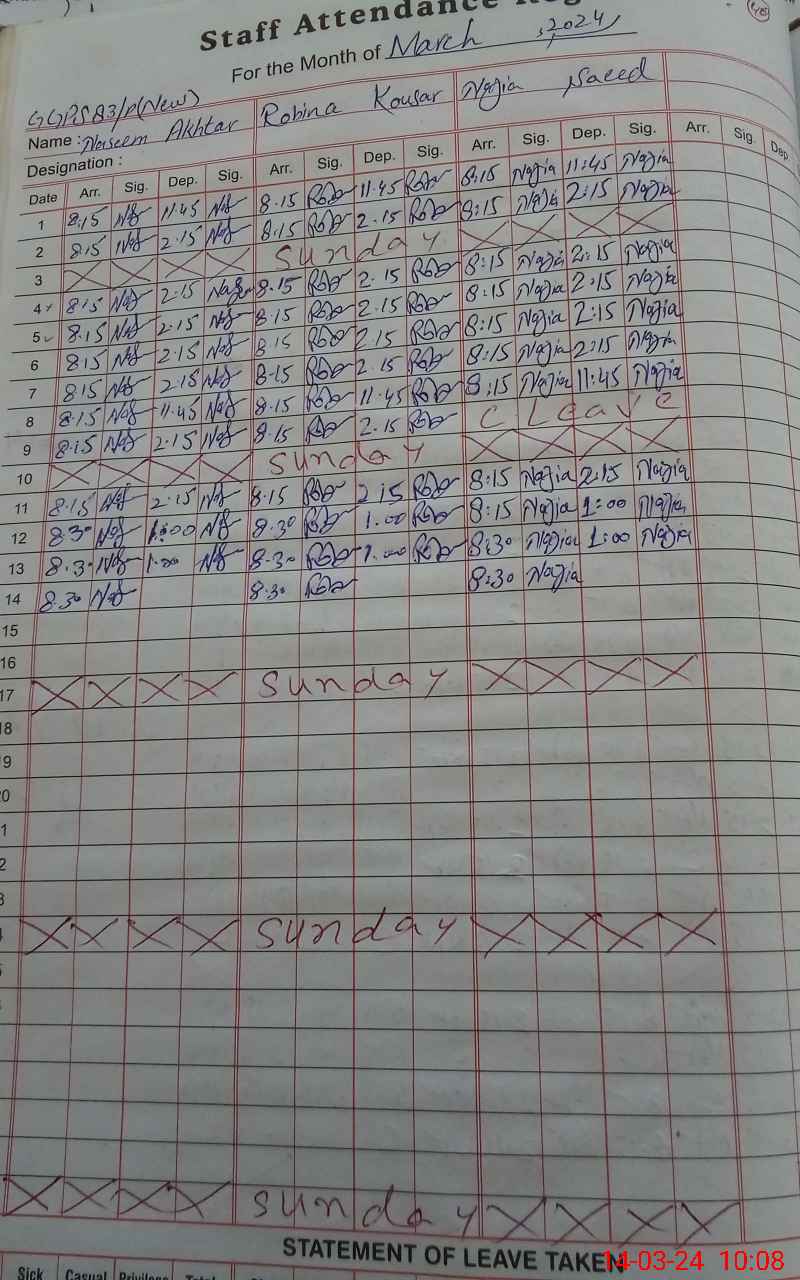 Staff Attendance Reg
For the Month of March, 2024
GGPS 83/P(New)
Name : Naseem Akhtar Robina Kousar Najia Saeed
Designation :
Date Arr. Sig. Dep. Sig. Arr. Sig. Dep. Sig. Arr. Sig. Dep. Sig. Arr. Sig. Dep
1 8.15 11.45 8.15 11.45 8:15 Najia 11:45 Najia
2 8.15 2.15 8.15 2.15 8:15 Najia 2:15 Najia
3 Sunday
4 8.15 2.15 8.15 2.15 8:15 Najia 2:15 Najia
5 8.15 2.15 8.15 2.15 8:15 Najia 2:15 Najia
6 8.15 2.15 8.15 2.15 8:15 Najia 2:15 Najia
7 8.15 2.15 8.15 2.15 8:15 Najia 2:15 Najia
8 8.15 11.45 8.15 11.45 8:15 Najia 11:45 Najia
9 8.15 2.15 8.15 2.15 C Leave
10 Sunday
11 8.15 2.15 8.15 2.15 8:15 Najia 2:15 Najia
12 8.30 1.00 8.30 1.00 8:15 Najia 1:00 Najia
13 8.30 1.00 8.30 1.00 8:30 Najia 1:00 Najia
14 8.30 8.30 8:30 Najia
15
16
17 Sunday
18
19
0
1
2
3
Sunday
Sunday
STATEMENT OF LEAVE TAKEN
14-03-24 10:08
Sick Casual Privilege Total